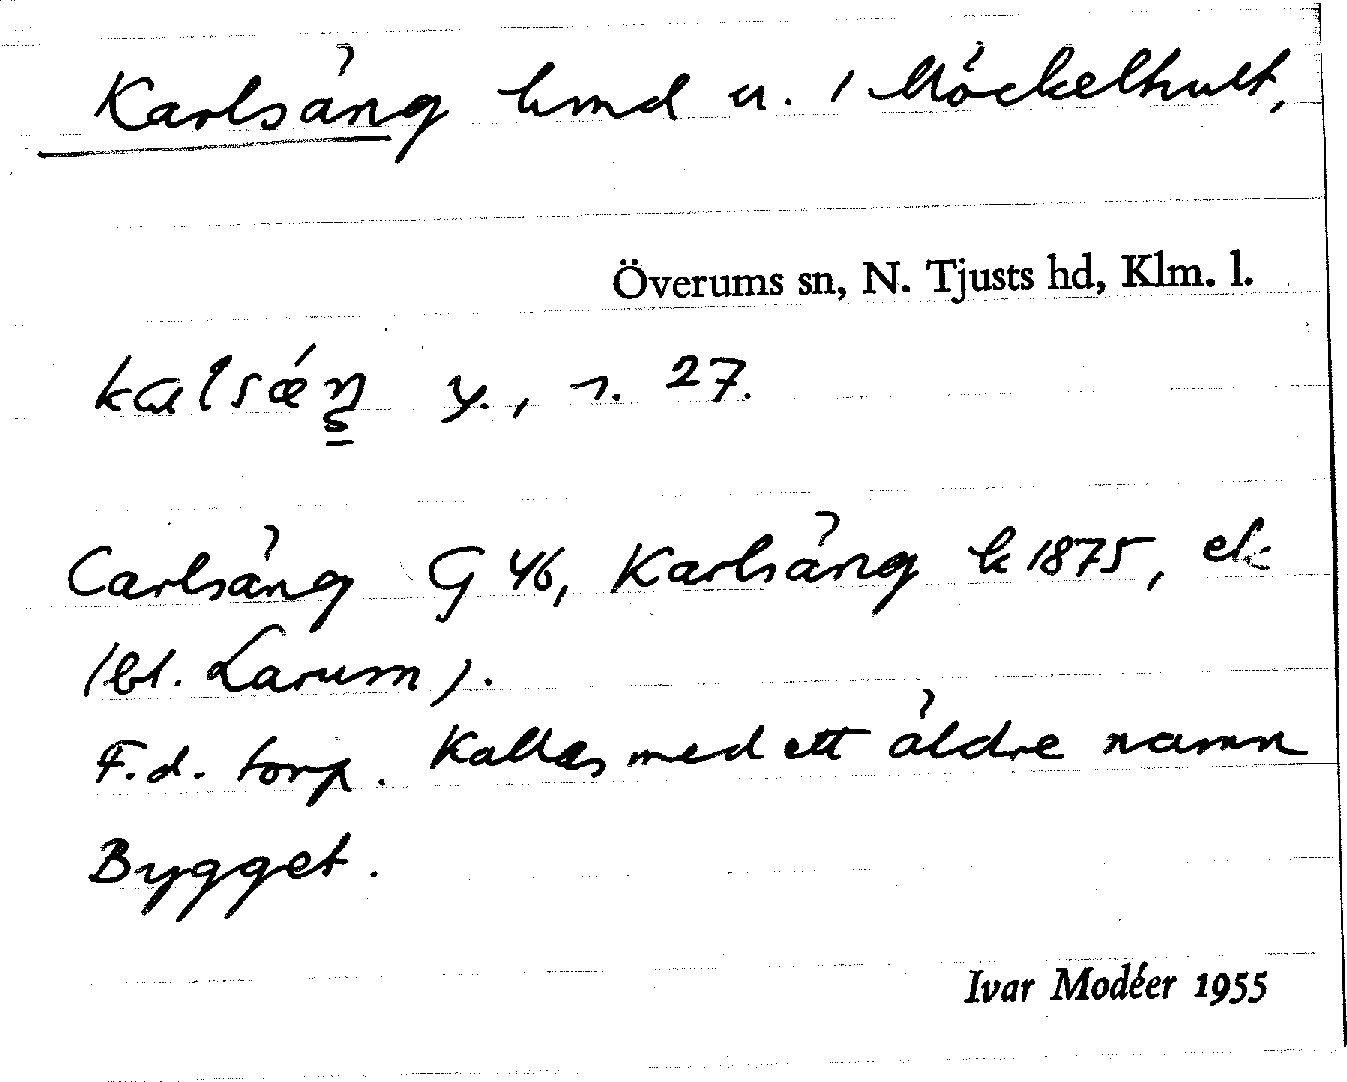 Karlsäng lmd u. / Möckelhult,
Överums sn, N. Tjusts hd, Klm. l.
kalsǽŋ y., r. 27.
Carlsäng G 46, Karlsäng k 1875, ek
(bl. Larum).
F.d. torp. Kallas med ett äldre namn
Bygget.
Ivar Modéer 1955